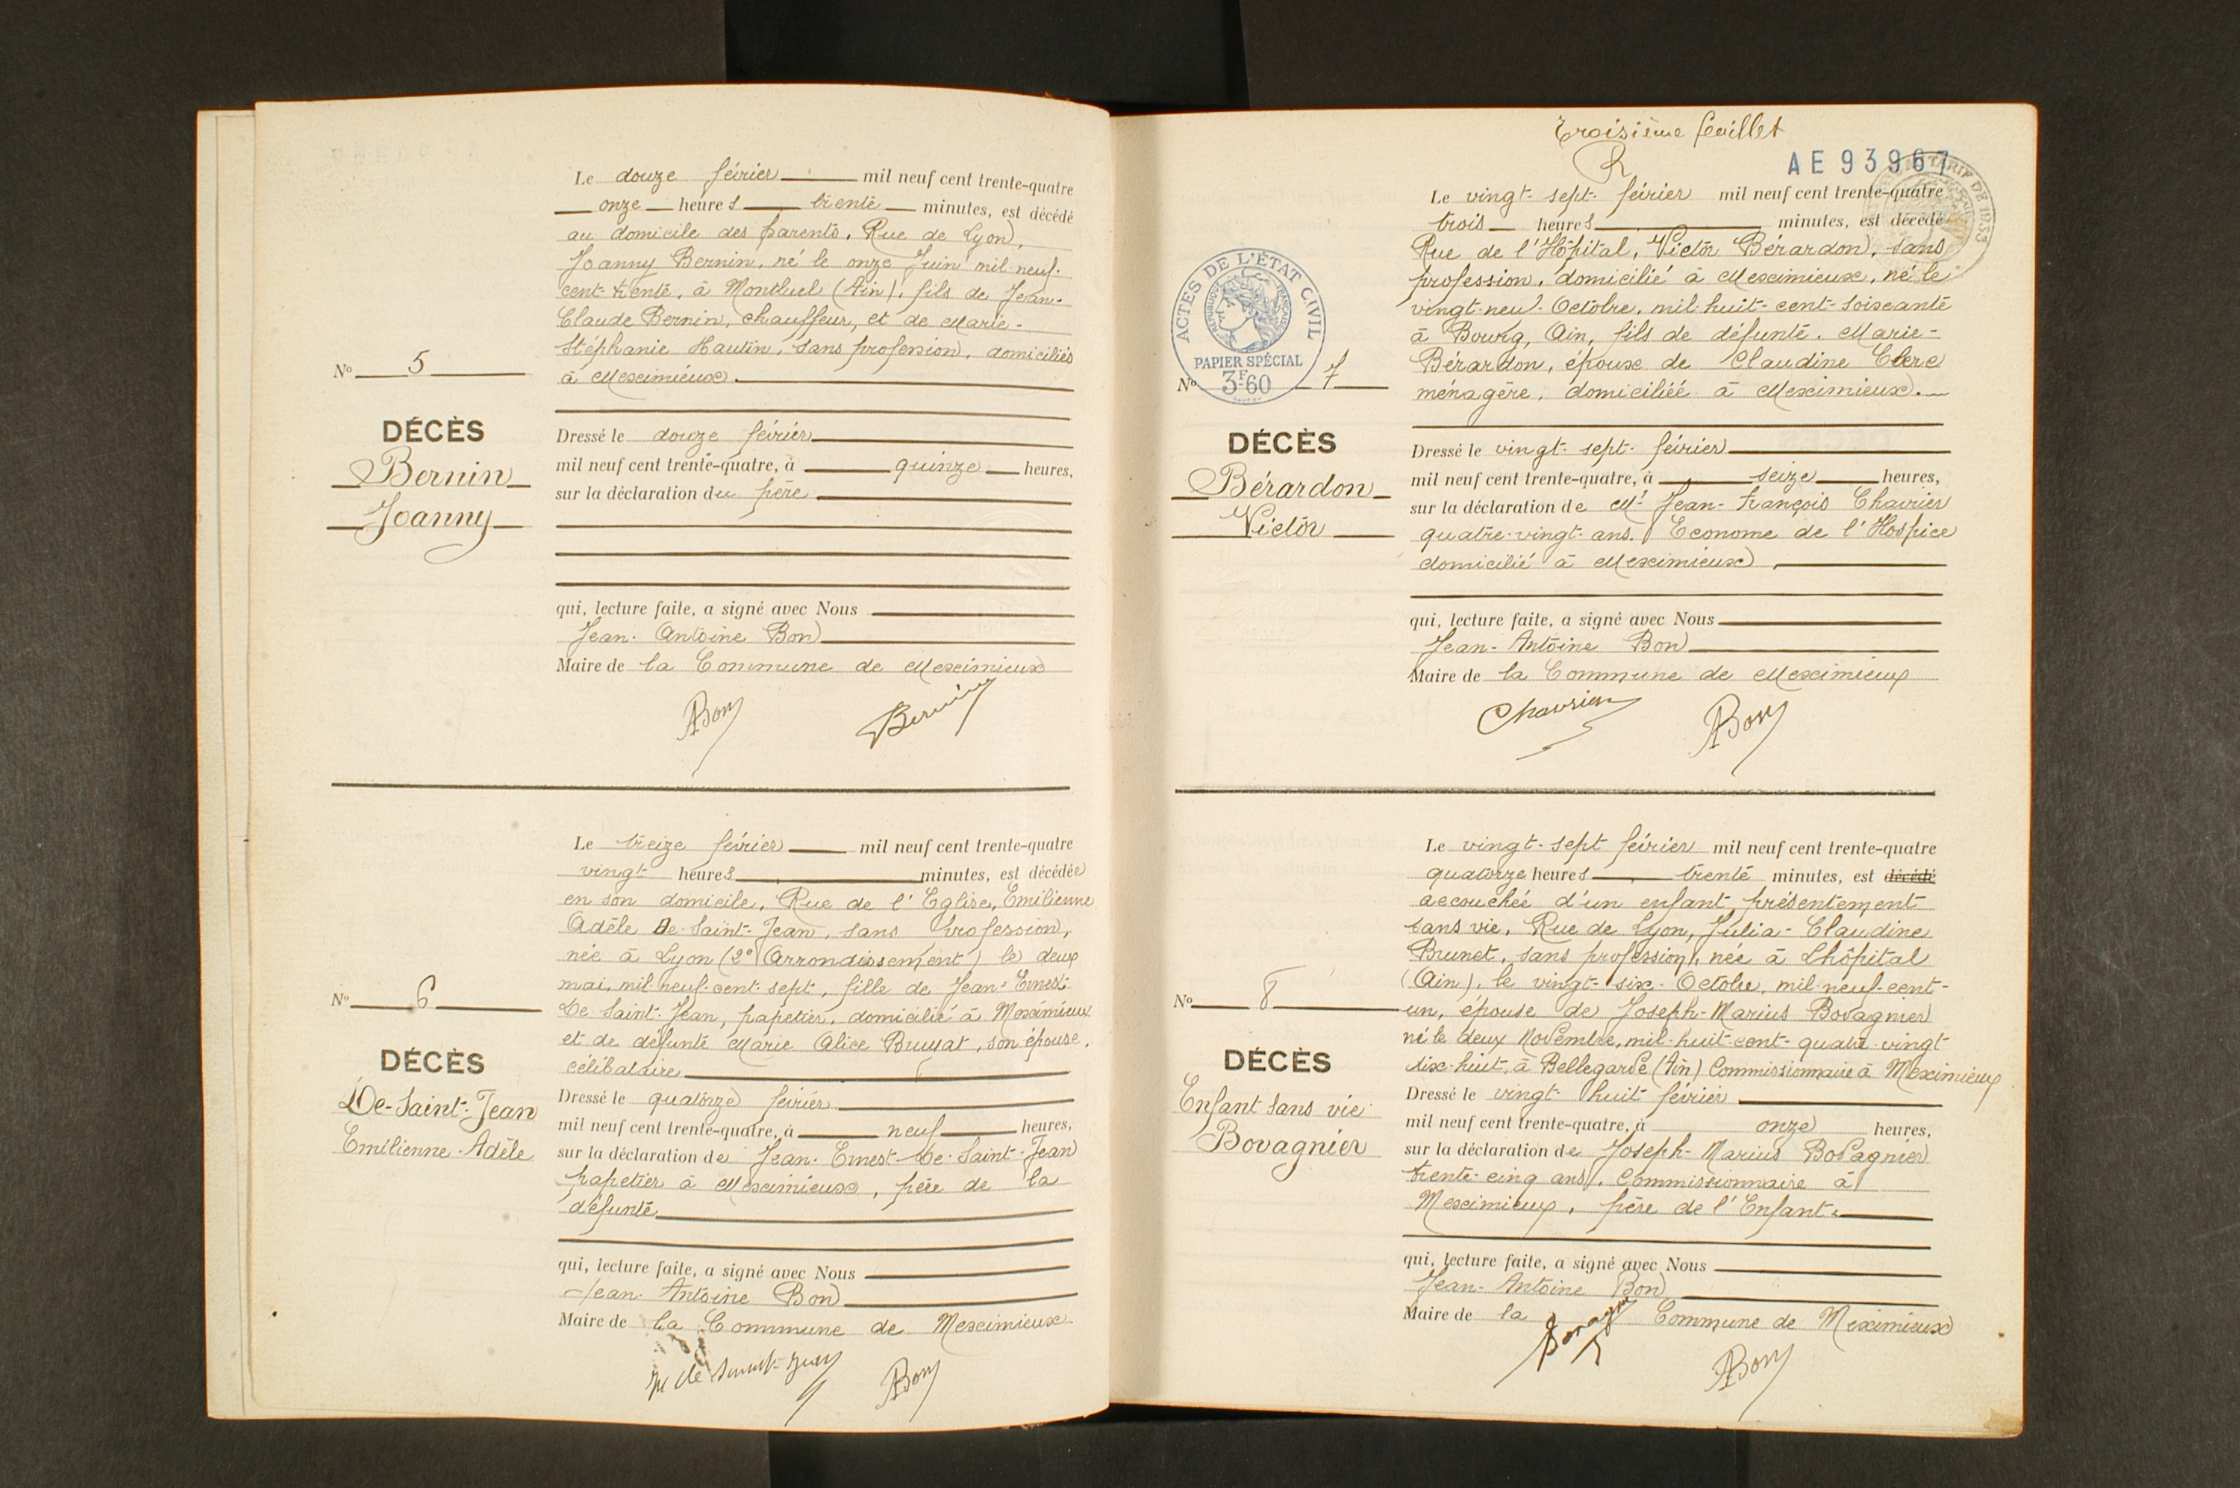 Le douze février mil neuf cent trente-quatre
onze heures trente minutes, est décédé
au domicile des parents, Rue de Lyon,
Joanny Bernin, né le onze Juin mil-neuf-
cent-trente, à Montluel (Ain), fils de Jean-
Claude Bernin, chauffeur, et de Marie-
Stéphanie Hautin, sans profession, domiciliés
à Meximieux.
No 5
DÉCÈS
Bernin
Joanny
Dressé le douze février
mil neuf cent trente-quatre, à quinze heures,
sur la déclaration du père
qui, lecture faite, a signé avec Nous
Jean-Antoine Bon
Maire de la Commune de Meximieux
ABon Bernin
Le treize février mil neuf cent trente-quatre
vingt heures, minutes, est décédée
en son domicile, Rue de l'Eglise, Emilienne
Adèle De-Saint-Jean, sans profession,
née à Lyon (2e Arrondissement) le deux
mai, mil-neuf-cent-sept, fille de Jean-Ernest
De-Saint-Jean, papetier, domicilié à Meximieux
et de défunte Marie Alice, son épouse,
célibataire
No 6
DÉCÈS
De-Saint-Jean
Emilienne-Adèle
Dressé le quatorze février
mil neuf cent trente-quatre, à neuf heures,
sur la déclaration de Jean-Ernest-De-Saint-Jean
papetier à Meximieux, père de la
défunte
qui, lecture faite, a signé avec Nous
Jean-Antoine Bon
Maire de la Commune de Meximieux
de Saint-Jean ABon
Troisième feuillet
AE 93967
TARIF DE 1933
Le vingt-sept-février mil neuf cent trente-quatre
trois heures, minutes, est décédé
Rue de l'Hôpital, Victor Bérardon, sans
profession, domicilié à Meximieux, né le
vingt-neuf-Octobre, mil-huit-cent-soixante
à Bourg, Ain, fils de défunte, Marie-
Bérardon, époux de Claudine Clerc
ménagère, domiciliée à Meximieux.
ACTES DE L'ÉTAT CIVIL
RÉPUBLIQUE FRANÇAISE
PAPIER SPÉCIAL
3F60
No 7
DÉCÈS
Bérardon
Victor
Dressé le vingt-sept-février
mil neuf cent trente-quatre, à seize heures,
sur la déclaration de Mr Jean-François Chavrier
quatre-vingt-ans, Econome de l'Hospice
domicilié à Meximieux,
qui, lecture faite, a signé avec Nous
Jean-Antoine Bon
Maire de la Commune de Meximieux
Chavrier ABon
Le vingt-sept février mil neuf cent trente-quatre
quatorze heures, trente minutes, est décédé
accouchée d'un enfant présentement
sans vie, Rue de Lyon, Julia-Claudine
Brunet, sans profession, née à Lhôpital
(Ain), le vingt-six-Octobre, mil-neuf-cent-
un, épouse de Joseph-Marius Bovagnier
né le deux Novembre, mil-huit-cent-quatre-vingt
dix-huit, à Bellegarde (Ain) Commissionnaire à Meximieux
No 8
DÉCÈS
Enfant sans vie
Bovagnier
Dressé le vingt-huit février
mil neuf cent trente-quatre, à onze heures,
sur la déclaration de Joseph-Marius Bovagnier
trente-cinq ans, Commissionnaire à
Meximieux, père de l'Enfant.
qui, lecture faite, a signé avec Nous
Jean-Antoine Bon
Maire de la Commune de Meximieux
ABon